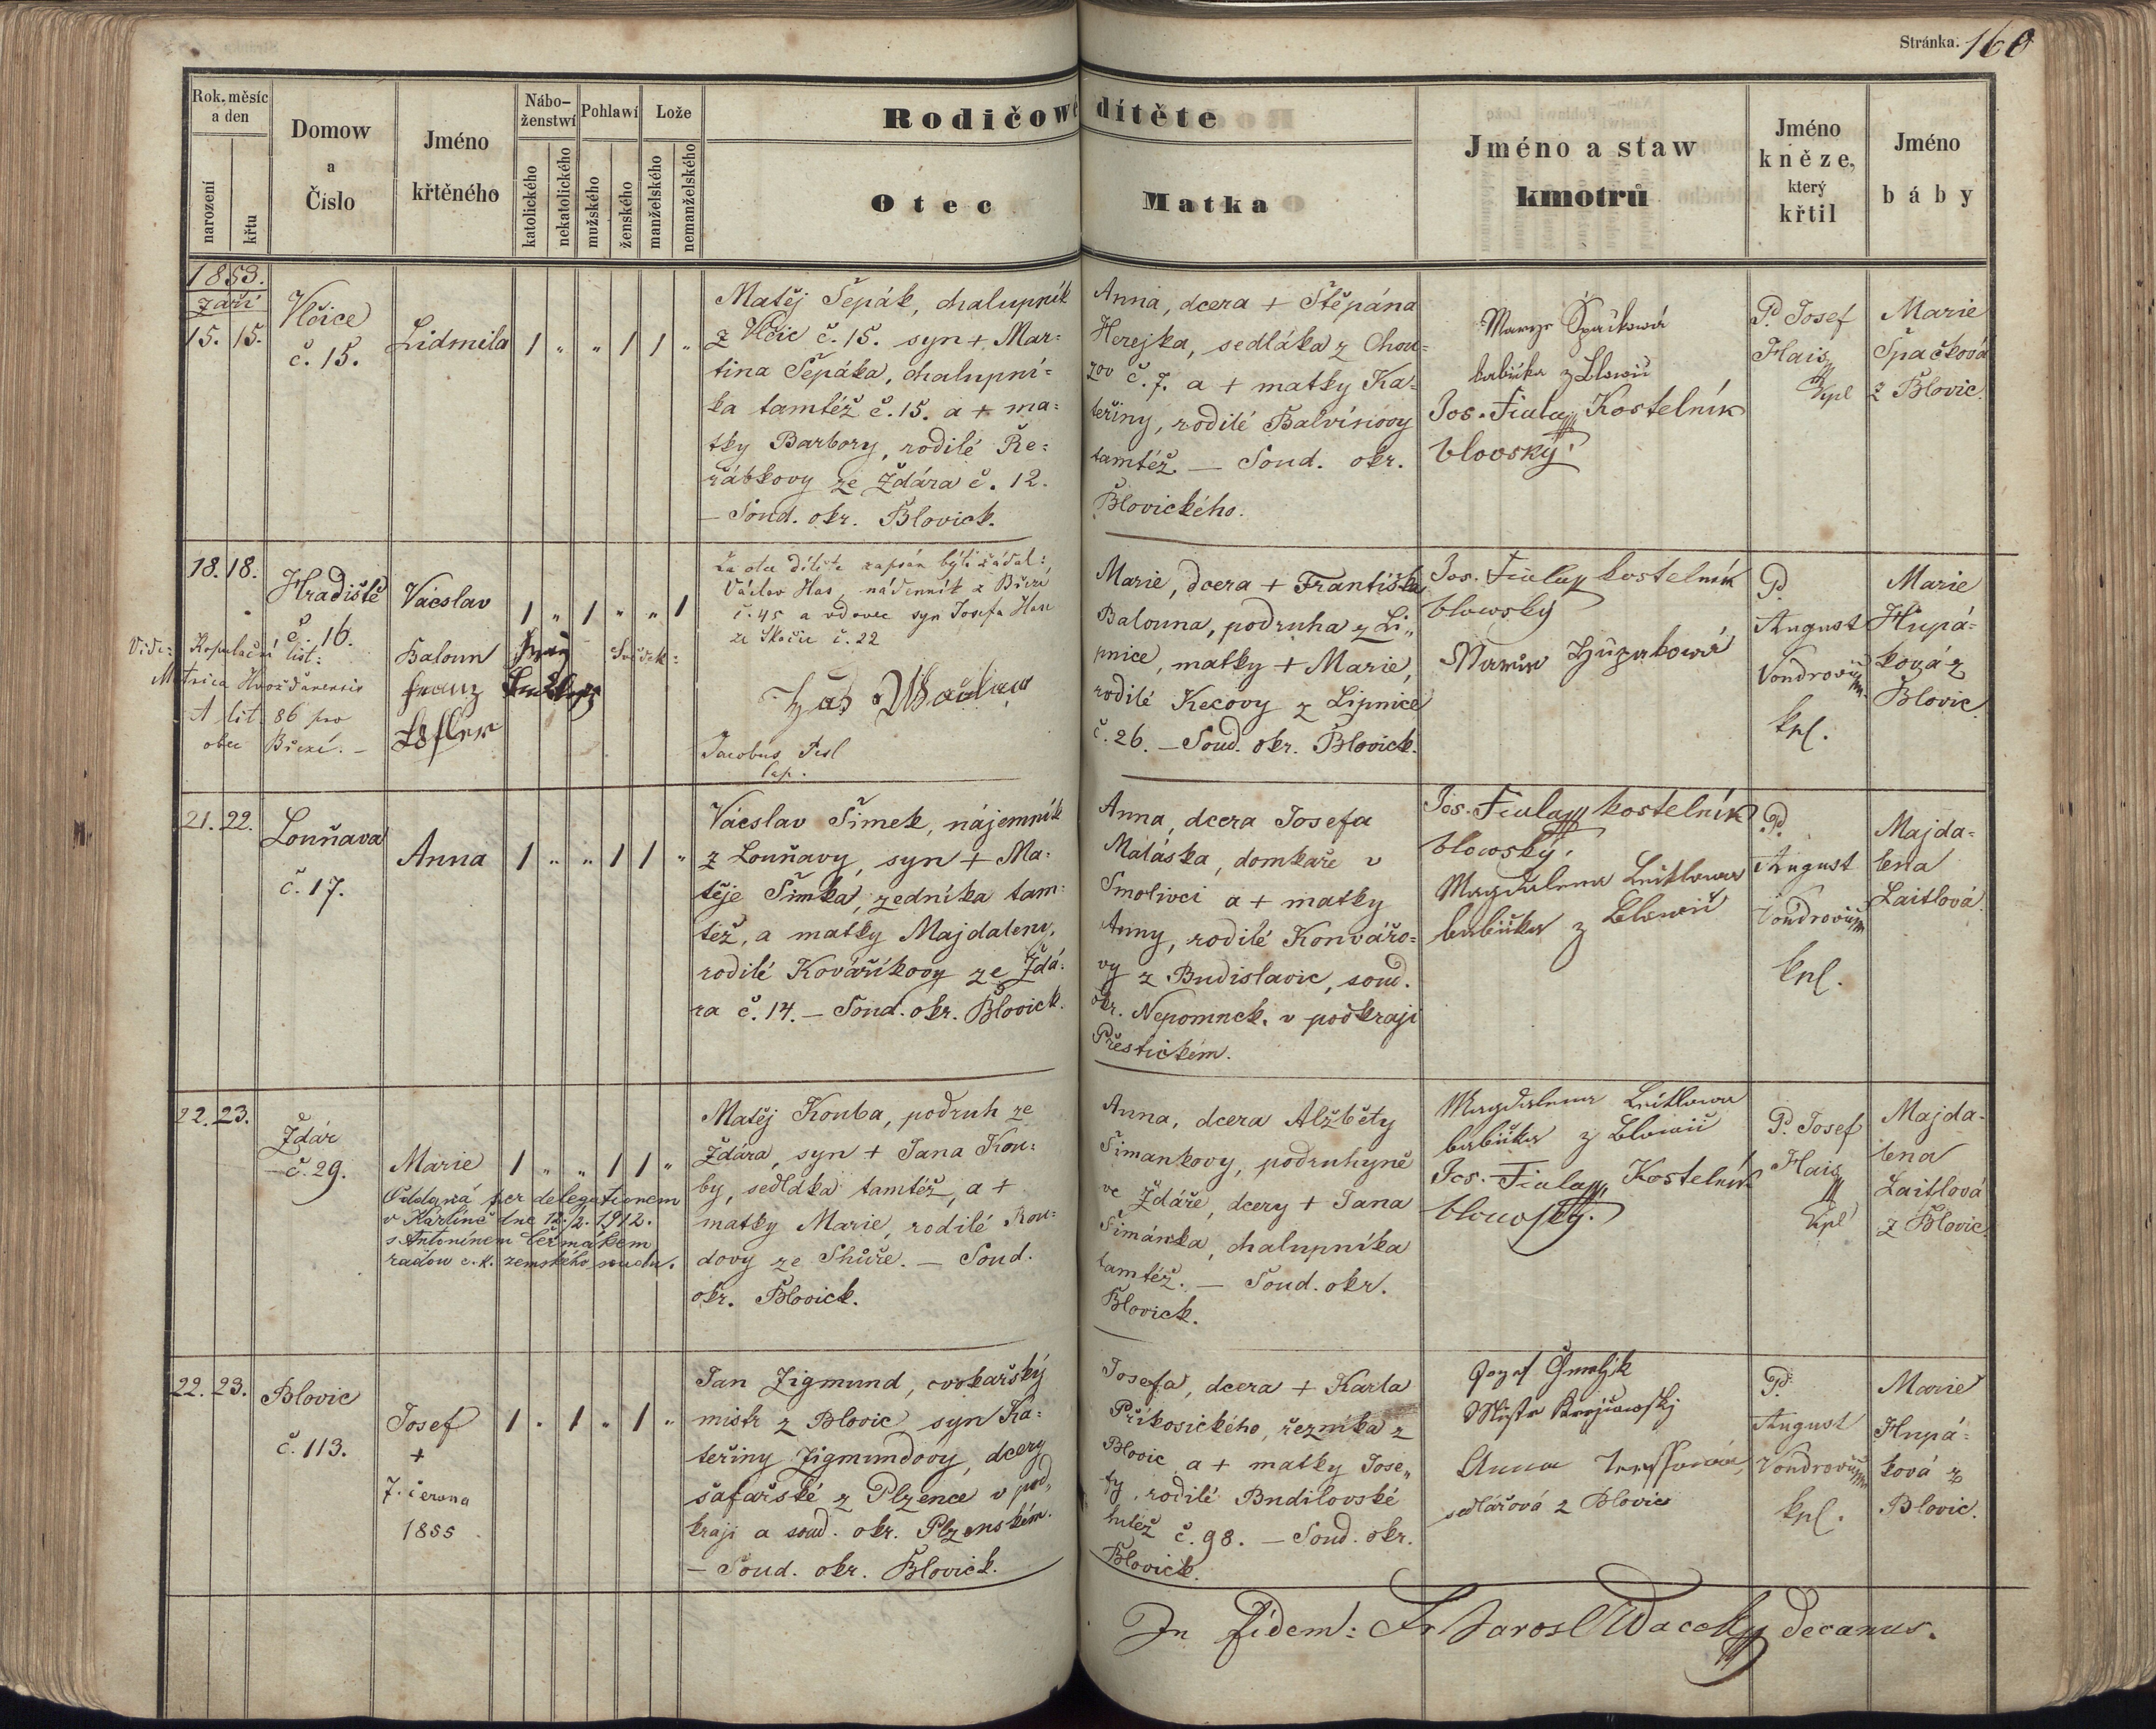 Stránka. 160
Rok, měsíc a den
narození
křtu
Domow
a
Číslo
Jméno
křtěného
Nábo-
ženstwí
katolického
nekatolického
Pohlawí
mužského
ženského
Lože
manželského
nemanželského
Rodičowé dítěte
Otec
Matka
Jméno a staw
kmotrů
Jméno
kněze,
který
křtil
Jméno
báby
1853.
září
15. 15.
Vlčice
č. 15.
Lidmila
1 " " 1 1 "
Matěj Šepák, chalupník
z Vlčic č. 15. syn + Mar=
tina Šepáka, chalupní=
ka tamtéž č. 15. a + ma=
tky Barbory, rodilé Ře=
řábkovy ze Ždára č. 12.
— Soud. okr. Blovick.
Anna, dcera + Štěpána
Herejka, sedláka z Chou=
zov č. 7. a + matky Ka=
teřiny, rodilé Balvínovy
tamtéž. — Soud. okr.
Blovického.
Marye Špačková
babička z Blowic
Jos. Fiala Kostelník
blovský.
P. Josef
Hais
kpl
Marie
Špačková
z Blovic.
18. 18.
Hradiště
č. 16.
Vácslav
1 " 1 " " 1
Za otce dítěte zapsán býti žádal:
Václav Has, nádenník z Březí
č. 45 a vdovec syn Josefa Hase
ze Skočic č. 22
Vide: Kopulační list:
Matrica Hvožďanensis
A lit. 86 pro
obec Březí. —
Baloun
Franz
Löfler
Svědek:
Has Waclaw
Jacobus Pesl
Cap.
Marie, dcera + Františka
Balouna, podruha z Li„
pnice, matky + Marie,
rodilé Kecovy z Lipnice
č. 26. — Soud. okr. Blovick.
Jos. Fiala kostelník
blowský
Maria Hupakowá
P.
August
Vondrovič
kpl.
Marie
Hupá=
ková z
Blovic.
21. 22.
Louňava
č. 17.
Anna
1 " " 1 1 "
Vácslav Šimek, nájemník
z Louňavy, syn + Ma=
těje Šimka, zedníka tam=
též, a matky Majdaleny,
rodilé Kováříkovy ze Ždá=
ra č. 14. — Soud. okr. Blovick.
Anna, dcera Josefa
Maláska, domkaře v
Smolivci a + matky
Anny, rodilé Konvářo=
vy z Budislavic, soud.
okr. Nepomuck. v podkraji
Přestickém.
Jos. Fiala kostelník
blowský.
Magdalena Leitlowa
babička z Blowic
P.
August
Vondrovič
kpl.
Majda=
lena
Laitlová
22. 23.
Ždár
č. 29.
Marie
1 " " 1 1 "
Oddaná per delegationem
v Karlíně dne 12/2. 1912.
s Antonínem Čermákem
radou c. k. zemského soudu.
Matěj Kouba, podruh ze
Ždára, syn + Jana Kou=
by, sedláka tamtéž, a +
matky Marie, rodilé Kou=
dovy ze Shůře. — Soud.
okr. Blovick.
Anna, dcera Alžběty
Šimankovy, podruhyně
ve Ždáře, dcery + Jana
Šimánka, chalupníka
tamtéž. — Soud. okr.
Blovick.
Magdalena Leitlowa
babička z Blowic
Jos. Fiala, Kostelník
blowský.
P. Josef
Hais
kpl
Majda-
lena
Laitlová
z Blovic.
22. 23.
Blovic
č. 113.
Josef
+
7. června
1855
1 " 1 " 1 "
Jan Zigmund, cvokařský
mistr z Blovic syn Ka=
teřiny Zigmundovy, dcery
šafařské z Plzence v pod„
kraji a soud. okr. Plzenském.
— Soud. okr. Blovick.
Josefa, dcera + Karla
Příkosického, řezníka z
Blovic a + matky Jose„
fy, rodilé Budilovské
tutéž č. 98. — Soud. okr.
Blovick.
Jozef Chmelik
Mistr Krejčowskj
Anna
sedlářová z Blovic
P.
August
Vondrovič
kpl.
Marie
Hupá=
ková z
Blovic.
In fidem: Fr Jarosl Wacek decanus.